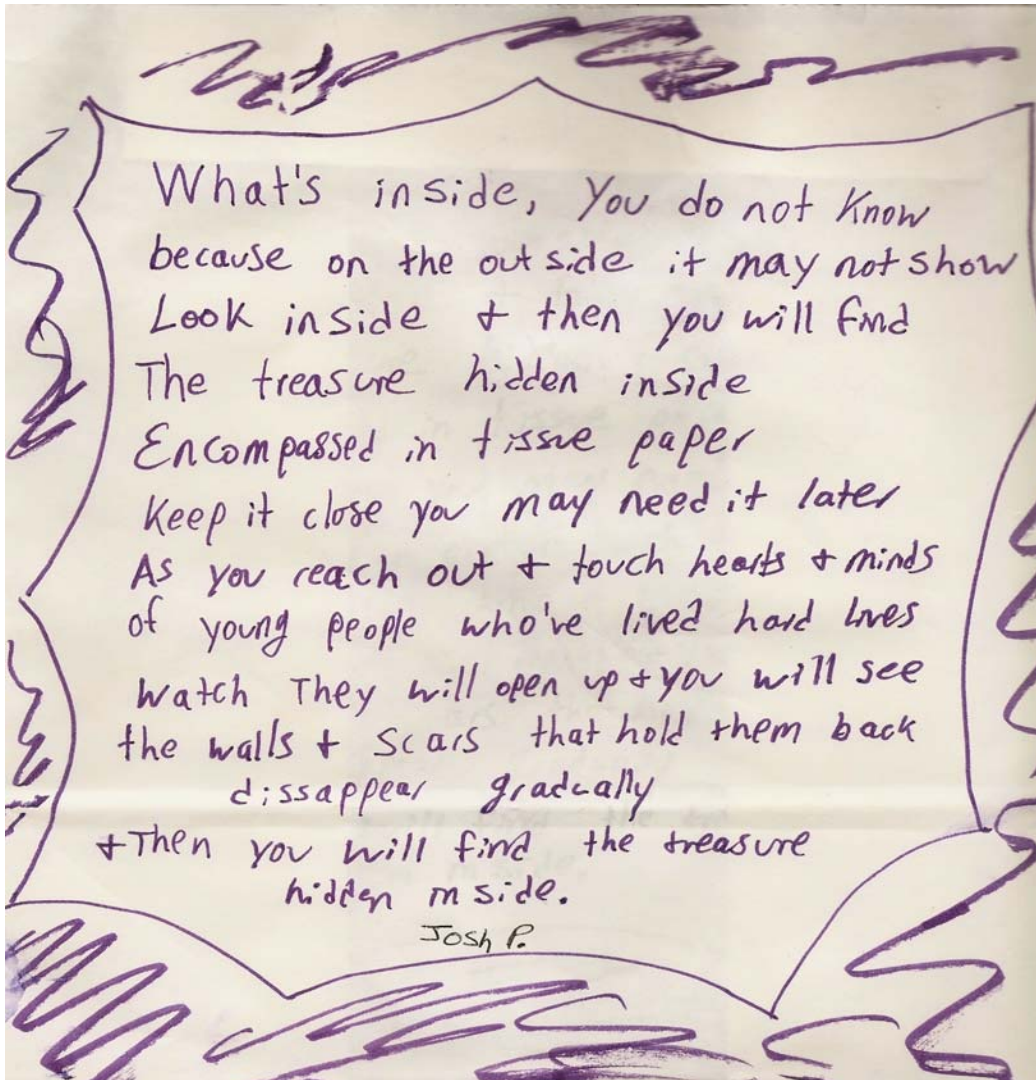 What's inside, You do not Know
because on the outside it may not show
Look inside + then you will find
The treasure hidden inside
Encompassed in tissue paper
Keep it close you may need it later
As you reach out + touch hearts + minds
of young people who've lived hard lives
Watch They will open up + you will see
the walls + scars that hold them back
dissappear gradually
+ Then you will find the treasure
hidden inside.
Josh P.